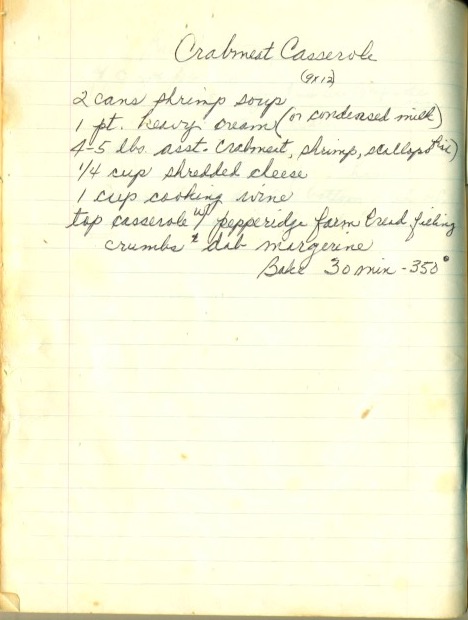 Crabmeat Casserole
(9x12)
2 cans shrimp soup
1 pt. heavy cream (or condensed milk)
4-5 lbs. asst. crabmeat, shrimp, scallops
1/4 cup shredded cheese
1 cup cooking wine
top casserole w/ pepperidge farm bread filling
crumbs & dab margerine
Bake 30 min - 350°